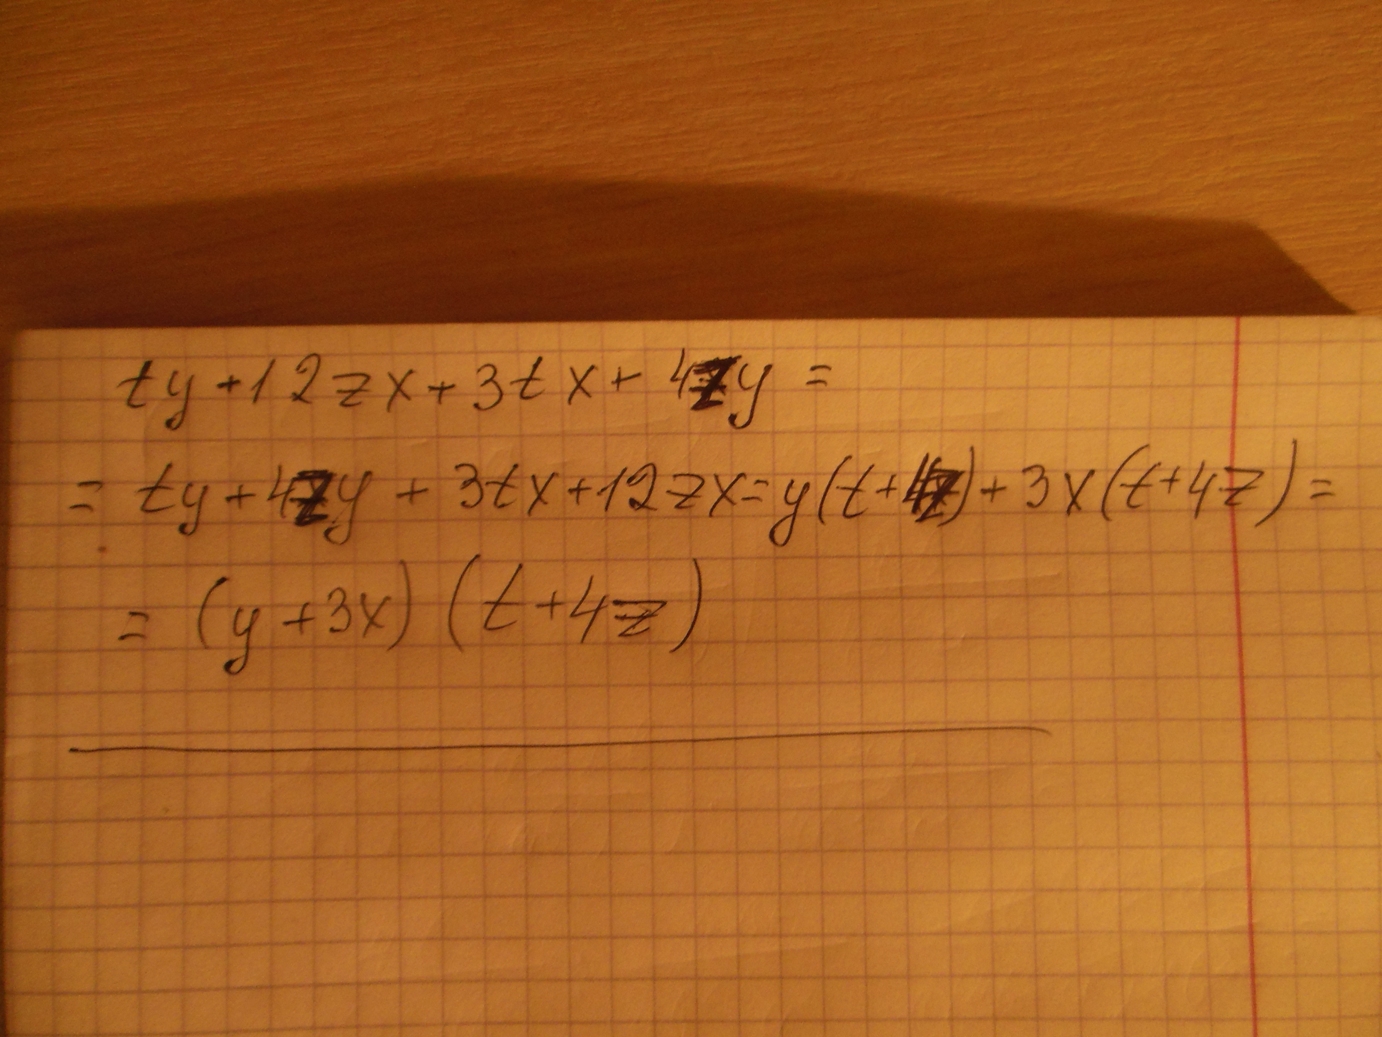 ty+12zx+3tx+4zy=
=ty+4zy+3tx+12zx=y(t+4z)+3x(t+4z)=
=(y+3x)(t+4z)